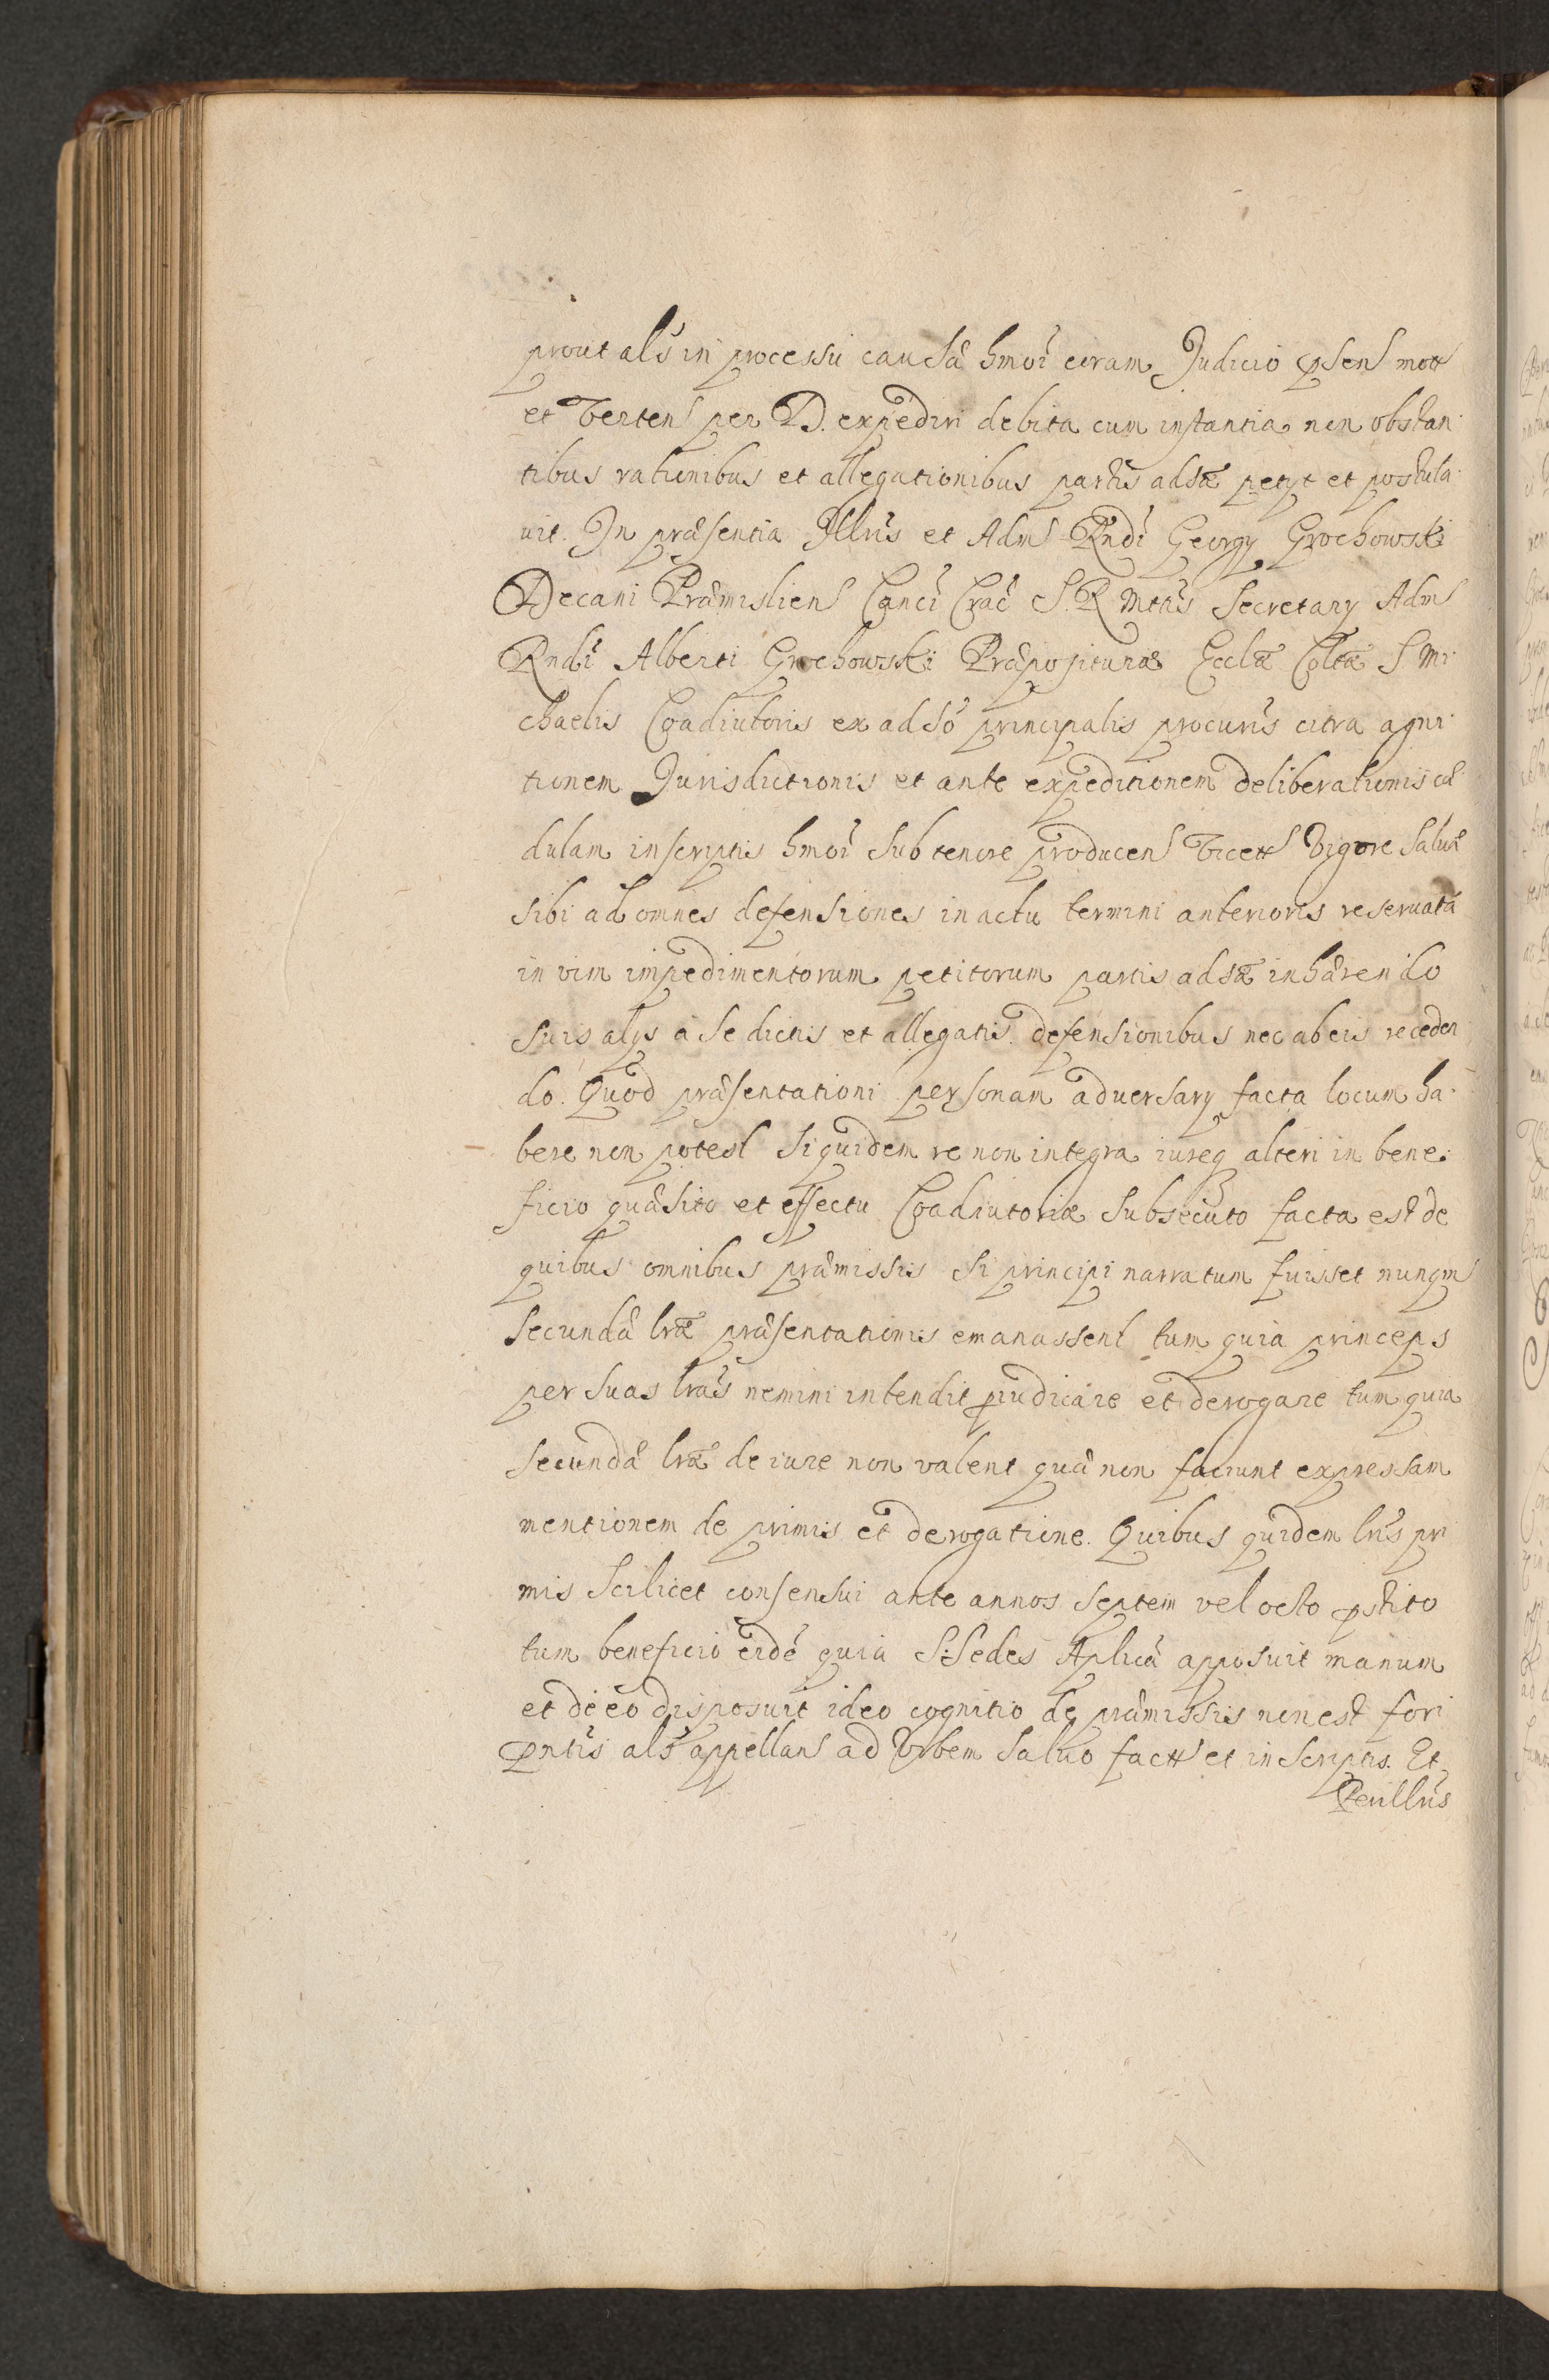 prout als in processu causæ hmoi coram Judicio psens mott
et vertens per D. expediri debita cum instantia non obstan
tibus rationibus et allegationibus partis adsæ petyt et postula
uit. In præsentia Illris et Adm Rndi Georgy Grochowski
Decani Præmislien Canci Crac S. R. Mttis Secretary Adm
Rndi Alberti Grochowski Præpositura Ecclæ Coltæ S Mi
chaelis Coadiutoris ex adso principalis procuris citra agni
tionem Jurisdictionis et ante expeditionem deliberationis cæ
dulam inscriptis hmoi sub tenore producens vigore saluæ
sibi ad omnes defensiones in actu termini anterioris reseruatæ
in vim impedimentorum petitorum partis adsæ inhærendo
suis alys a se dictis et allegatis defensionibus nec ab eis receden
do. Quod præsentationi personam adversary facta locum ha
bere non potest siquidem re non integra iureq alteri in bene
ficio quæsito et effectu Coadiutoriæ subsecuto facta est de
quibus omnibus præmissis si principi narratum fuisset nunqm
secundæ lræ præsentationis emanassent tum quia princeps
per suas lras nemini intendit piudicare et derogare tum quia
secundæ lræ de iure non valent quæ non faciunt expressam
mentionem de primis et derogatione. Quibus quidem lris pri
mis scilicet consensui ante annos septem vel octo pstito
tum beneficio eidē quia S. Sedes Aplicā apposuit manum
et de eo disposuit ideo cognitio de præmissis non est fori
pntis als appellans ad Vrbem saluo factt et in scriptis. Et
Peillris